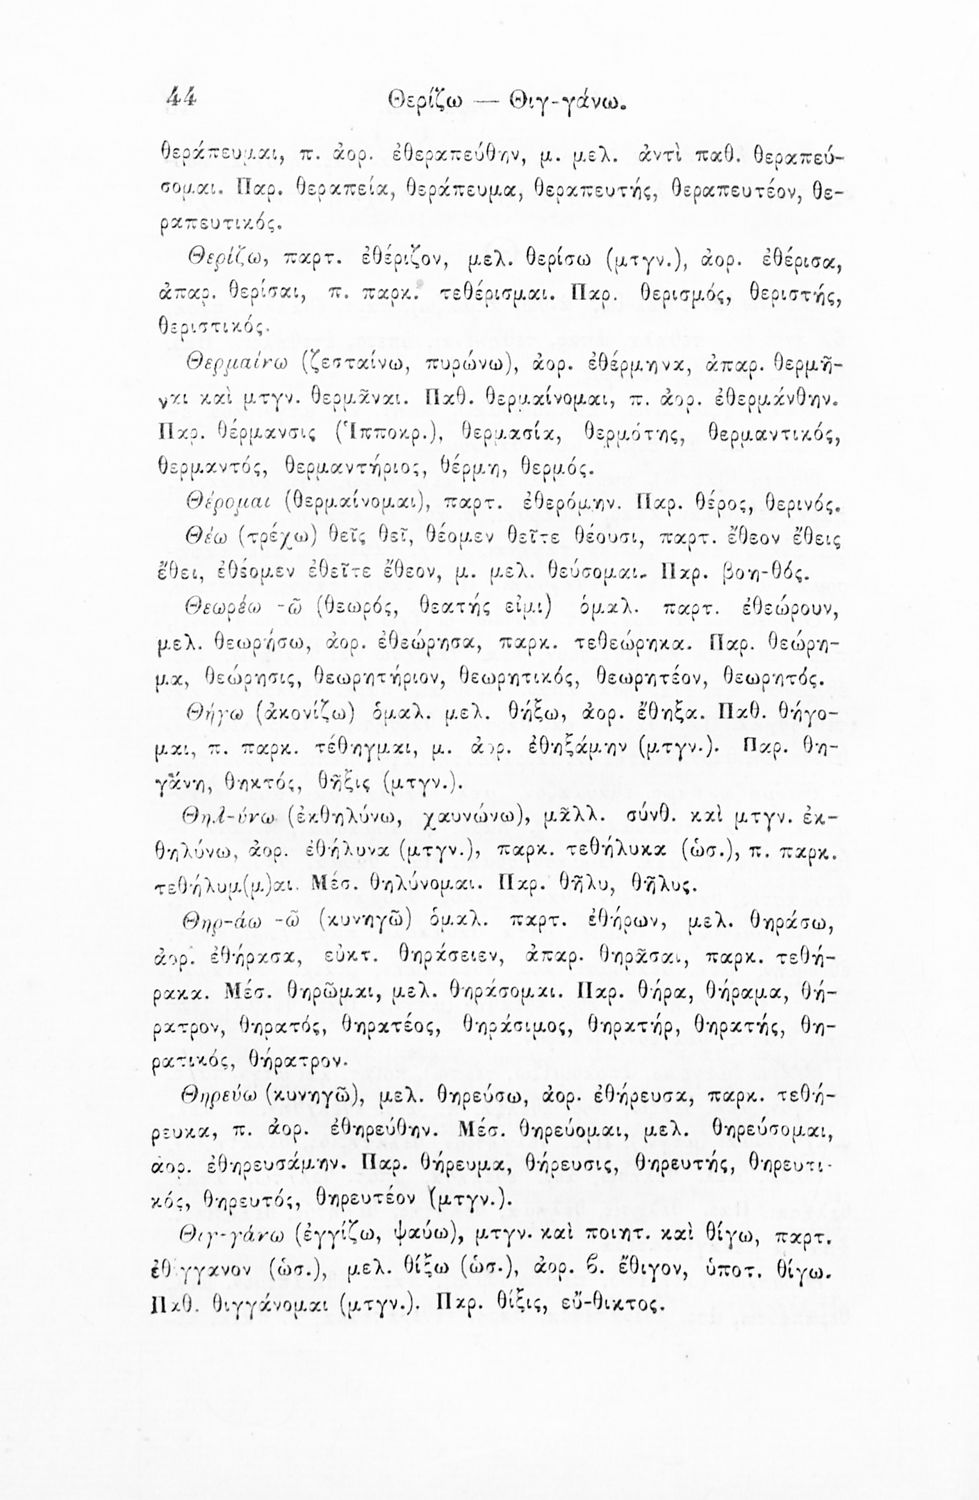 44 Θερίζω — Θιγ-γάνω.
θεράπευμαι, π. ἀορ. ἐθεραπεύθην, μ. μελ. ἀντὶ παθ. θεραπεύ-
σομαι. Παρ. θεραπεία, θεράπευμα, θεραπευτής, θεραπευτέον, θε-
ραπευτικός.
Θερίζω, παρτ. ἐθέριζον, μελ. θερίσω (μτγν.), ἀορ. ἐθέρισα,
ἀπαρ. θερίσαι, π. παρκ. τεθέρισμαι. Παρ. θερισμός, θεριστής,
θεριστικός.
Θερμαίνω (ζεσταίνω, πυρώνω), ἀορ. ἐθέρμηνα, ἀπαρ. θερμῆ-
ναι καὶ μτγν. θερμᾶναι. Παθ. θερμαίνομαι, π. ἀορ. ἐθερμάνθην.
Παρ. θέρμανσις (Ἱπποκρ.), θερμασία, θερμότης, θερμαντικός,
θερμαντός, θερμαντήριος, θέρμη, θερμός.
Θέρομαι (θερμαίνομαι), παρτ. ἐθερόμην. Παρ. θέρος, θερινός.
Θέω (τρέχω) θεῖς θεῖ, θέομεν θεῖτε θέουσι, παρτ. ἔθεον ἔθεις
ἔθει, ἐθέομεν ἐθεῖτε ἔθεον, μ. μελ. θεύσομαι. Παρ. βοη-θός.
Θεωρέω -ῶ (θεωρός, θεατής εἰμι) ὁμαλ. παρτ. ἐθεώρουν,
μελ. θεωρήσω, ἀορ. ἐθεώρησα, παρκ. τεθεώρηκα. Παρ. θεώρη-
μα, θεώρησις, θεωρητήριον, θεωρητικός, θεωρητέον, θεωρητός.
Θήγω (ἀκονίζω) ὁμαλ. μελ. θήξω, ἀορ. ἔθηξα. Παθ. θήγο-
μαι, π. παρκ. τέθηγμαι, μ. ἀορ. ἐθηξάμην (μτγν.). Παρ. θη-
γάνη, θηκτός, θῆξις (μτγν.).
Θηλ-ύνω (ἐκθηλύνω, χαυνώνω), μᾶλλ. σύνθ. καὶ μτγν. ἐκ-
θηλύνω, ἀορ. ἐθήλυνα (μτγν.), παρκ. τεθήλυκα (ὡσ.), π. παρκ.
τεθήλυμ(μ)αι. Μέσ. θηλύνομαι. Παρ. θῆλυ, θῆλυς.
Θηρ-άω -ῶ (κυνηγῶ) ὁμαλ. παρτ. ἐθήρων, μελ. θηράσω,
ἀορ. ἐθήρασα, εὐκτ. θηράσειεν, ἀπαρ. θηρᾶσαι, παρκ. τεθή-
ρακα. Μέσ. θηρῶμαι, μελ. θηράσομαι. Παρ. θήρα, θήραμα, θή-
ρατρον, θηρατός, θηρατέος, θηράσιμος, θηρατήρ, θηρατής, θη-
ρατικός, θήρατρον.
Θηρεύω (κυνηγῶ), μελ. θηρεύσω, ἀορ. ἐθήρευσα, παρκ. τεθή-
ρευκα, π. ἀορ. ἐθηρεύθην. Μέσ. θηρεύομαι, μελ. θηρεύσομαι,
ἀορ. ἐθηρευσάμην. Παρ. θήρευμα, θήρευσις, θηρευτής, θηρευτι-
κός, θηρευτός, θηρευτέον (μτγν.).
Θιγ-γάνω (ἐγγίζω, ψαύω), μτγν. καὶ ποιητ. καὶ θίγω, παρτ.
ἐθίγγανον (ὡσ.), μελ. θίξω (ὡσ.), ἀορ. β. ἔθιγον, ὑποτ. θίγω.
Παθ. θιγγάνομαι (μτγν.). Παρ. θίξις, εὔ-θικτος.